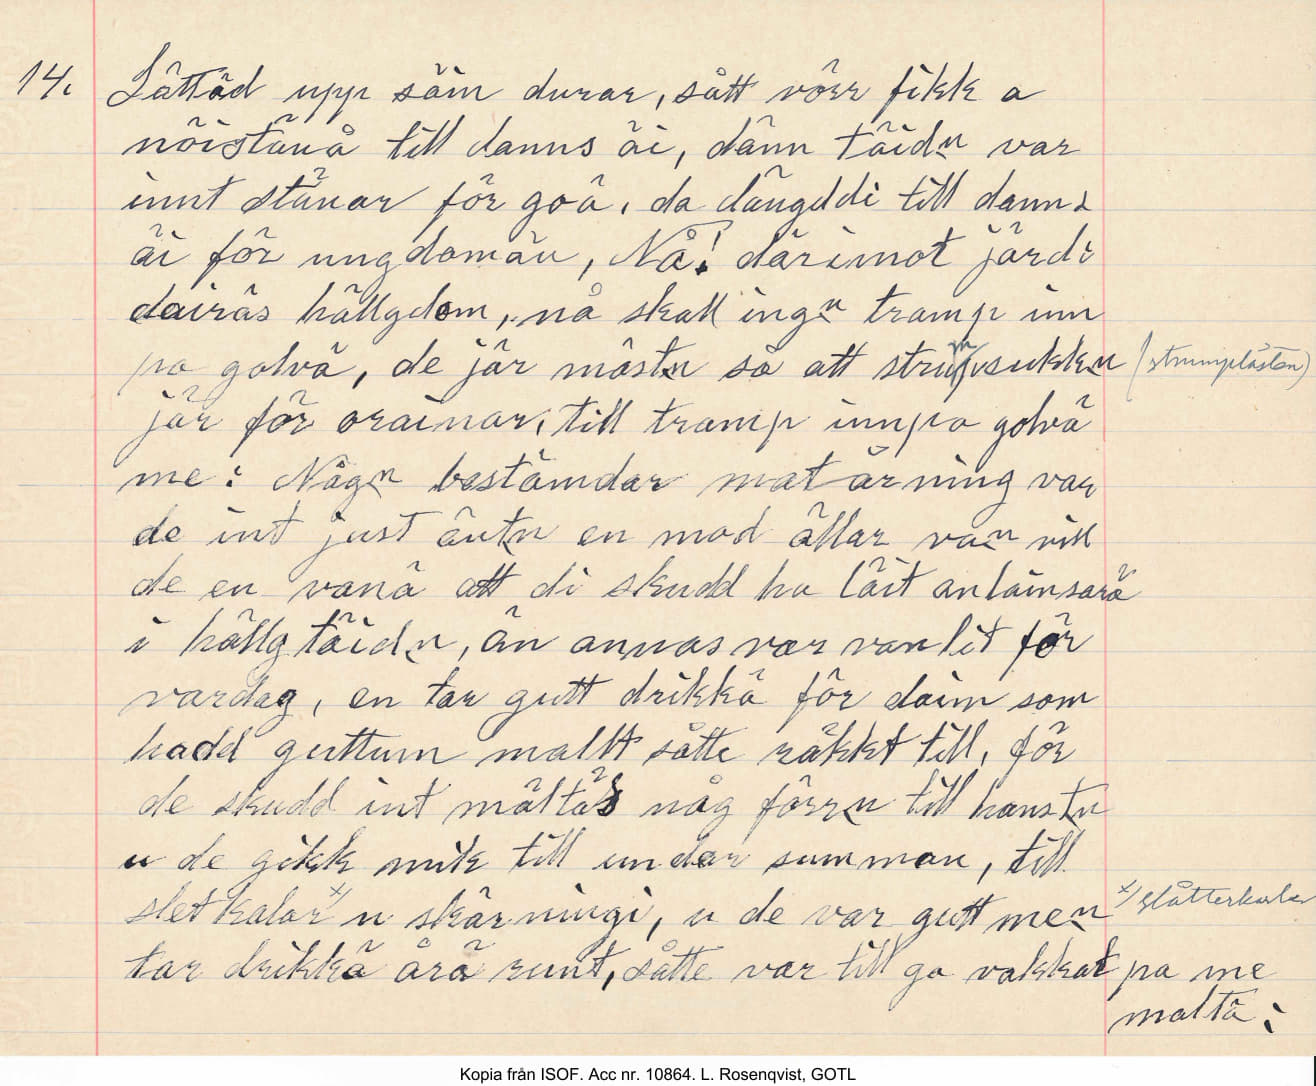 14. Låttäd upp säin durar, sått vörr fikk a
nöistäuå till danns äi, dänn täidn var
innt stäuar för goä, da dängddi till danns
äi för ungdomäu, Nå! därimot järdi
dairäs hällgdom, nå skall ingn tramp inn
pa golvä, de jär mästn så att strumpsukkn (strumplästen)
jär för orainar, till tramp innpa golvä
me: Någn bestämdar matärning var
de int just äutn en mod ällar van vill
de en vanä att di skudd ha läit anlainsarä
i hällgtäidn, än annas var vanlit för
vardag, en tar gutt drikkä för daim som
hadd guttum mallt såtte räkkt till, för
de skudd int mältäs någ förrn till haustn
u de gikk mik till undar summan, till
sletkalar x/ u skärningi, u de var gutt men x/ slåtterkarlar
tar drikkä årä runt, såtte var till ga vakkat pa me
maltä:
Kopia från ISOF. Acc nr. 10864. L. Rosenqvist, GOTL